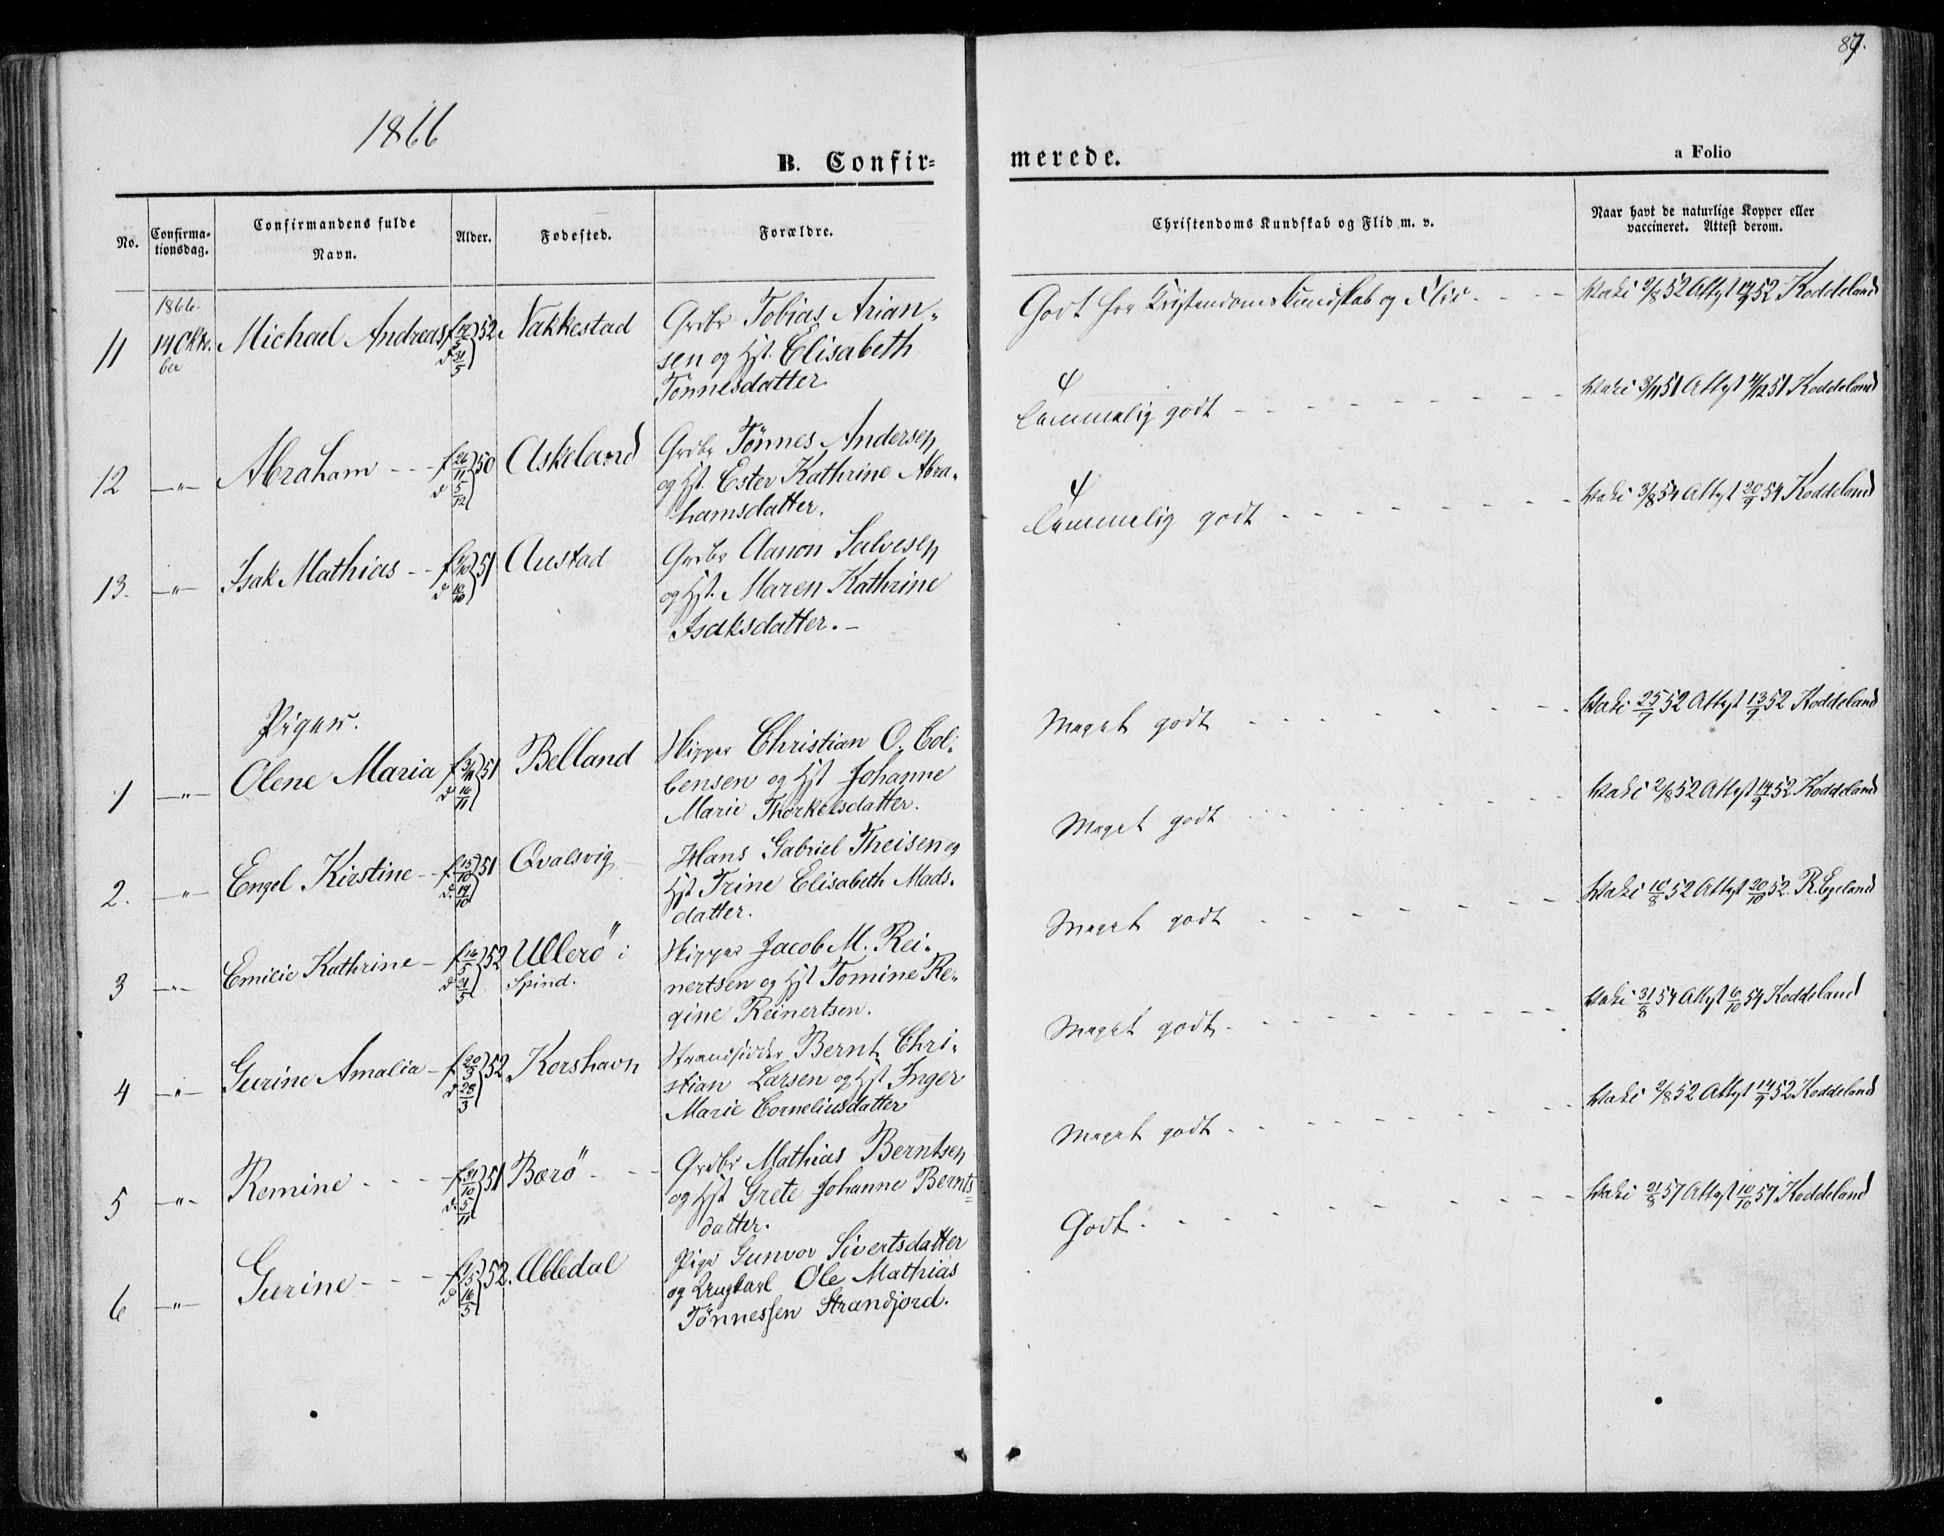 87.
1866
B. Confir-
merede.
a Folio
No.
Confirma-
tionsdag.
Confirmandens fulde
Navn.
Alder.
Fødested.
Forældre.
Christendoms Kundskab og Flid m. v.
Naar havt de naturlige Kopper eller
vaccineret. Attest derom.
1866.
11 14 Oktr. Michael Andreas 52 Nakkestad Grdbr Tobias Arian-
ber
sen og Hst. Elisabeth
Tønnesdatter
Godt for Kristendomskundskab og Flid
Vakc 2/8 52 Attest 14/9 52 Koddeland
12 —"— Abraham f 26/11 50 d 5/12 Askeland Grdbr Tønnes Andersen
og Hst. Ester Kathrine Abra-
hamsdatter.
Temmelig godt
Vakc 3/11 51 Attest 11/12 51 Koddeland
13. —"— Isak Mathias 51 Austad Grdbr Aanon Salvesen
og Hst. Maren Kathrine
Isaksdatter.—
Temmelig godt
Vakc 31/8 54 Attest 20/9 54 Koddeland
Piger.
1 —"— Olene Maria 51 d 16/11 Belland Skipper Christian O. Col-
bensen og Hst Johanne
Marie Thorkelsdatter.
Meget godt
Vakc 25/7 52 Attest 13/9 52 Koddeland
2. —"— Engel Kirstine f 15/10 51 d. 19/10 Qvalsvig Hans Gabriel Theisen og
Hst Trine Elisabeth Mads-
datter.
Meget godt
Vakc 2/8 52 Attest 14/9 52 Koddeland
3 —"— Emilie Kathrine f 16/5 52 d 21/5 Ullerø i
Spind.
Skipper Jacob M. Rei-
nertsen og Hst Tomine Re-
gine Reinertsen.
Meget godt
Vakc 10/8 52 Attest 20/10 52. R. Egeland
4 —"— Gurine Amalia f 20/3 52 d 28/3 Korshavn Strandsidder Bernt Chri-
stian Larsen og Hst Inger
Marie Corneliusdatter
Meget godt
Vakc 31/8 54 Attest 6/10 54 Koddeland
5 —"— Remine f 31/10 51 d. 5/11 Bærø Grdbr Mathias Berntsen
og Hst Grete Johanne Bernts-
datter.
Meget godt
Vakc 2/8 52 Attest 14/9 52 Koddeland
6 —"— Gurine 52. d 16/5 Aabedal Pige Gunvor Sivertsdatter
og Ungkarl Ole Mathias
Tønnessen Strandjord.
Godt.
Vakc 21/8 57 Attest 10/10 57 Koddeland